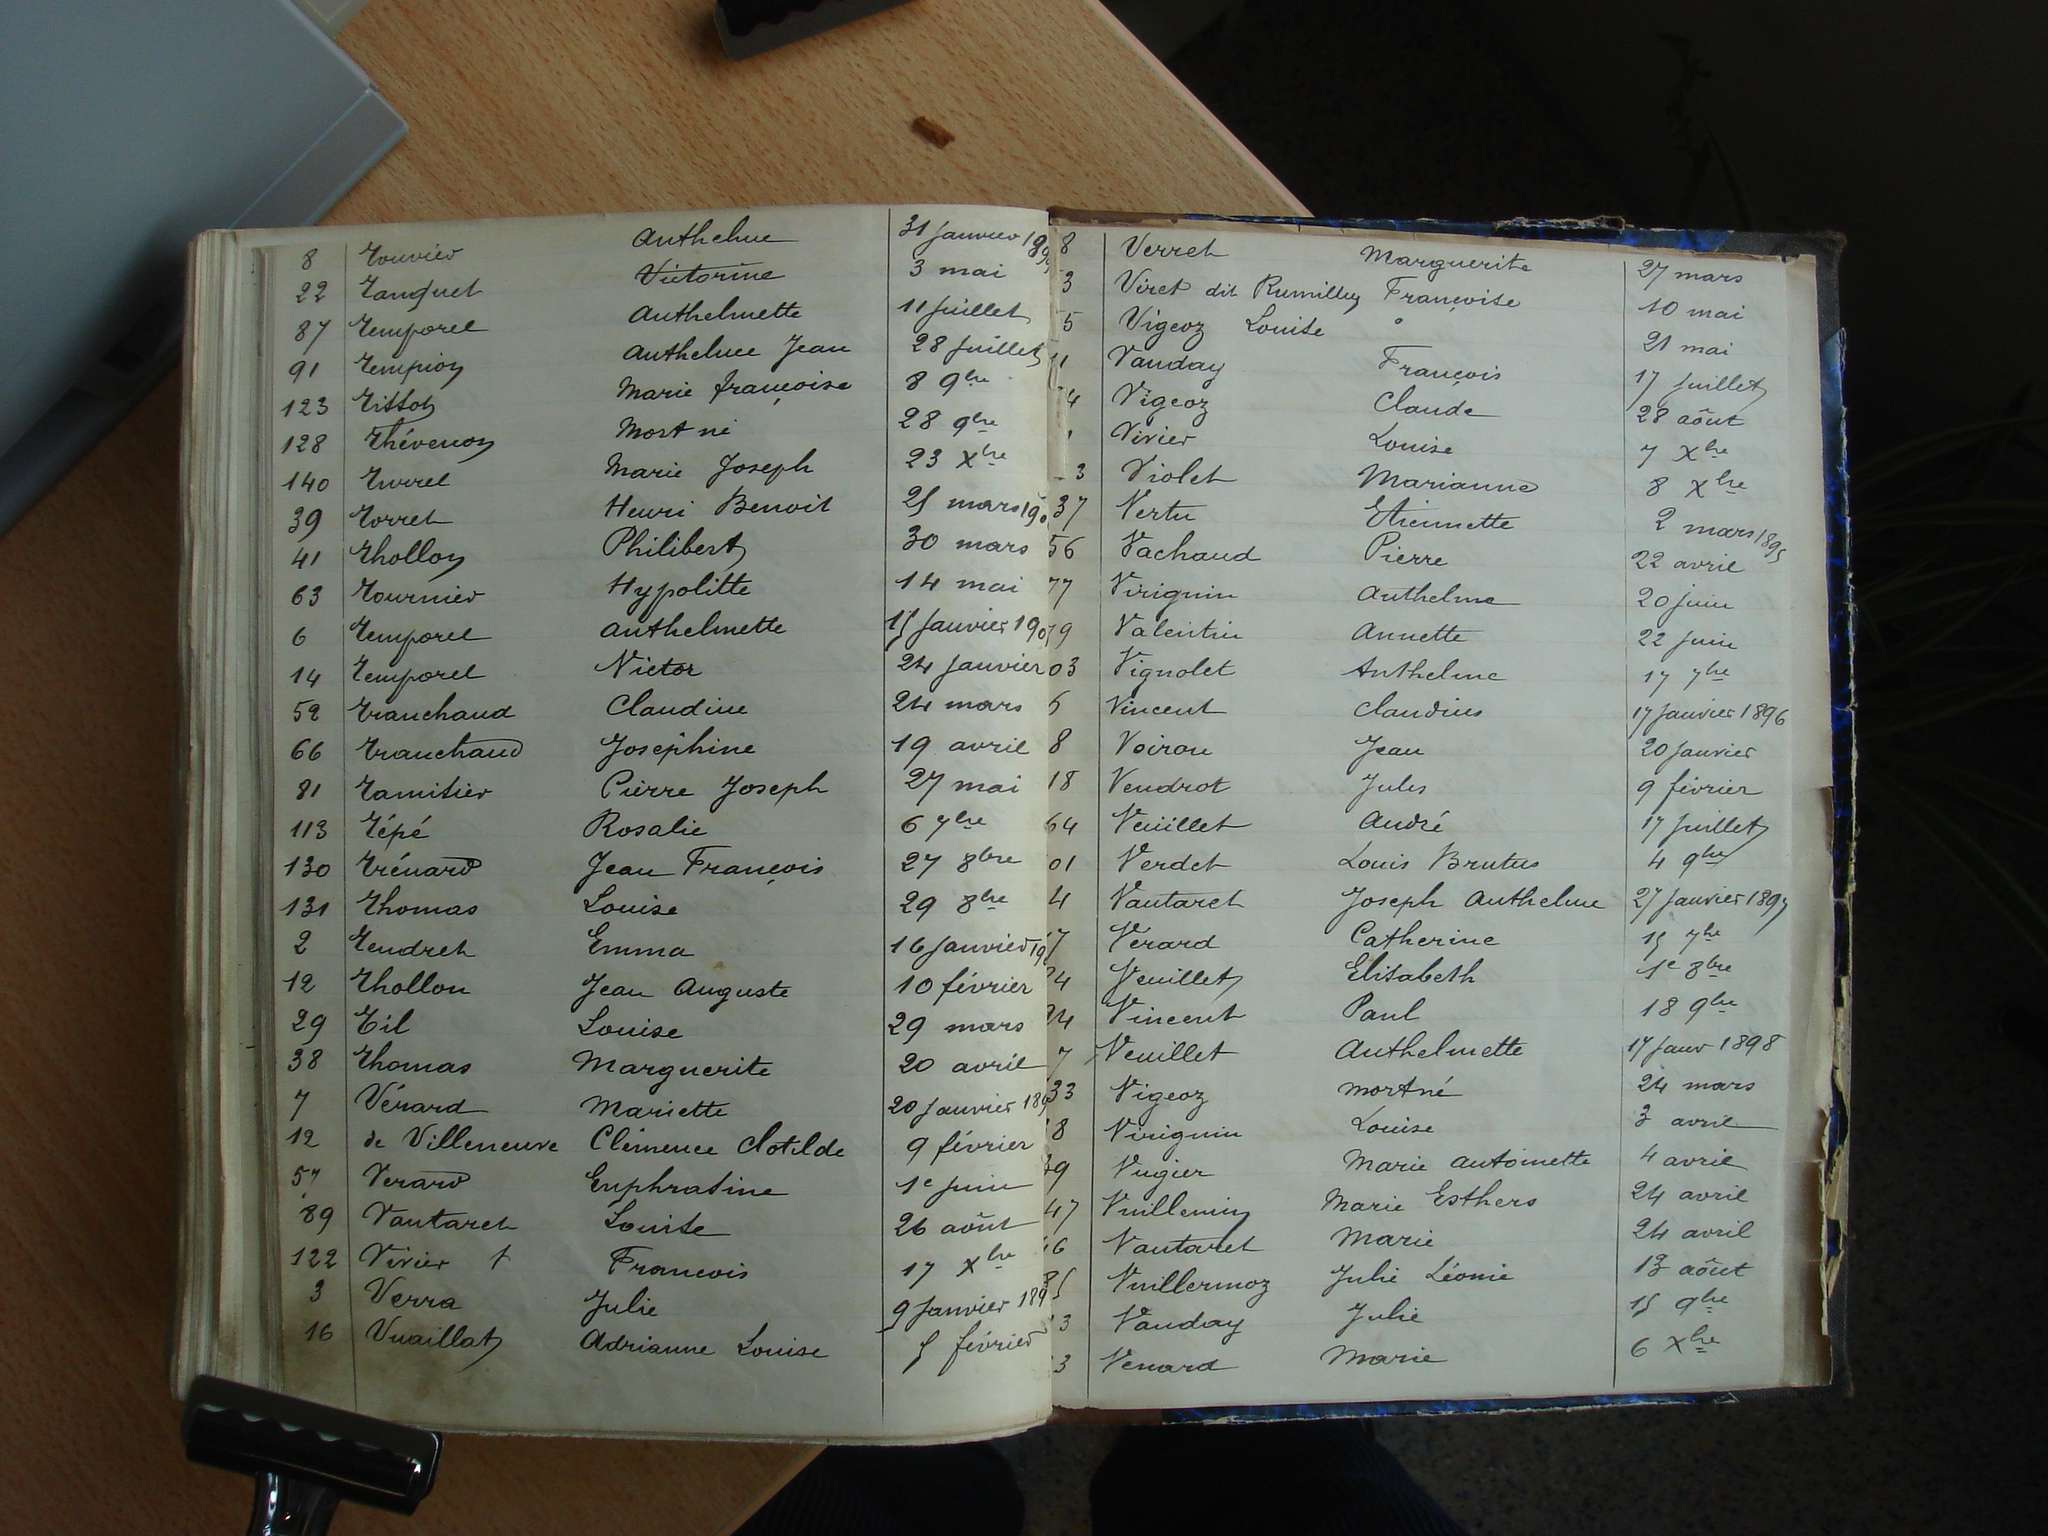 8 Touvier Anthelme 31 Janvier 1899
22 Tanquet Victorine 3 mai
87 Temporel Anthelmette 11 Juillet
91 Tempion Anthelme Jean 28 Juillet
123 Tissot Marie françoise 8 9bre
128 Thévenon Mort né 28 9bre
140 Turrel Marie Joseph 23 Xbre
39 Torret Henri Benoit 25 mars 190
41 Thollon Philibert 30 mars
63 Tournier Hypolitte 14 mai
6 Temporel Anthelmette 15 Janvier 190
14 Temporel Victor 24 Janvier
52 Tranchand Claudine 24 mars
66 Tranchand Joséphine 19 avril
81 Tamisier Pierre Joseph 27 mai
113 Tépé Rosalie 6 7bre
130 Trénard Jean François 27 8bre
131 Thomas Louise 29 8bre
2 Tendret Emma 16 Janvier 19
12 Thollon Jean Auguste 10 février
29 Til Louise 29 mars
38 Thomas Marguerite 20 avril
7 Vérard Mariette 20 Janvier 189
12 de Villeneuve Clémence Clotilde 9 février
57 Verard Euphrasine 1e Juin
89 Vautaret Louise 26 août
122 Vivier + François 17 Xbre
3 Verra Julie 9 Janvier 189
16 Vuaillat Adrianne Louise 5 février
8 Verret Marguerite 27 mars
3 Viret dit Rumilley Françoise 10 mai
5 Vigeoz Louise 21 mai
1 Vauday François 17 Juillet
4 Vigeoz Claude 28 août
1 Vivier Louise 7 Xbre
3 Violet Marianne 8 Xbre
37 Vertu Etiennette 2 mars 1895
56 Vachaud Pierre 22 avril
77 Virignin Anthelme 20 Juin
79 Valentin Annette 22 Juin
03 Vignolet Anthelme 17 7bre
5 Vincent Claudius 17 Janvier 1896
8 Voiron Jean 20 Janvier
18 Vendrot Jules 9 février
64 Veuillet André 17 Juillet
01 Verdet Louis Brutus 4 9bre
4 Vautaret Joseph Anthelme 27 Janvier 1897
7 Verard Catherine 15 7bre
4 Veuillet Elisabeth 1e 8bre
24 Vincent Paul 18 9bre
7 Veuillet Anthelmette 17 Janv 1898
33 Vigeoz mort né 24 mars
8 Virignin Louise 3 avril
39 Vugier Marie Antoinette 4 avril
47 Vuillemin Marie Esthers 24 avril
6 Vautaret Marie 24 avril
85 Vuillermoz Julie Léonie 13 août
3 Vauday Julie 15 9bre
3 Venard Marie 6 Xbre